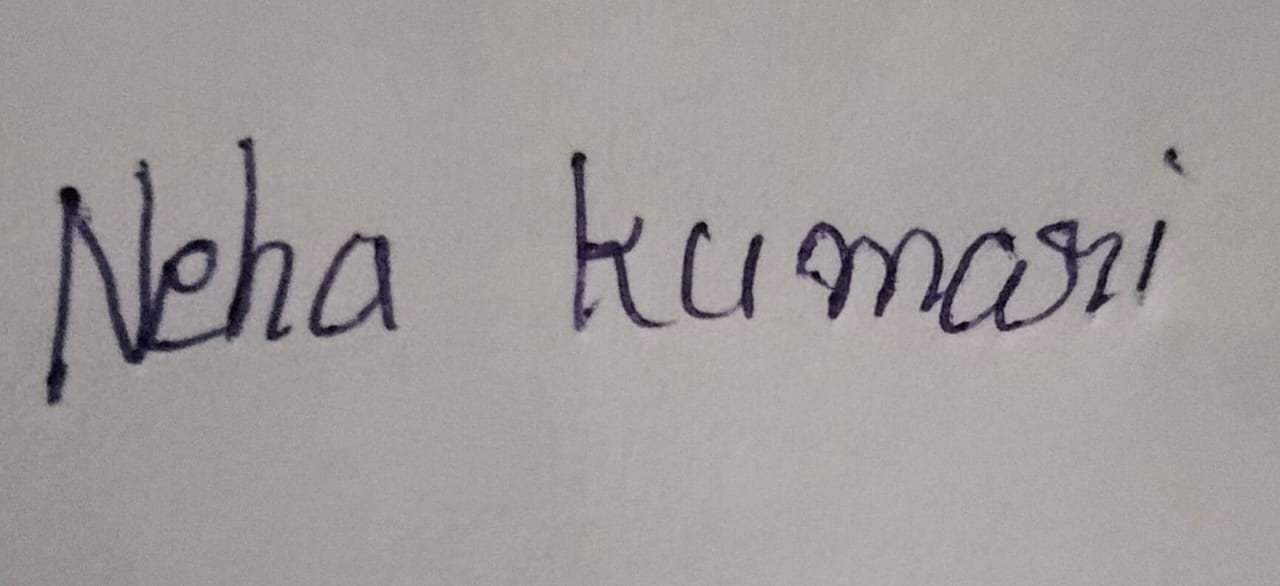 Neha kumari